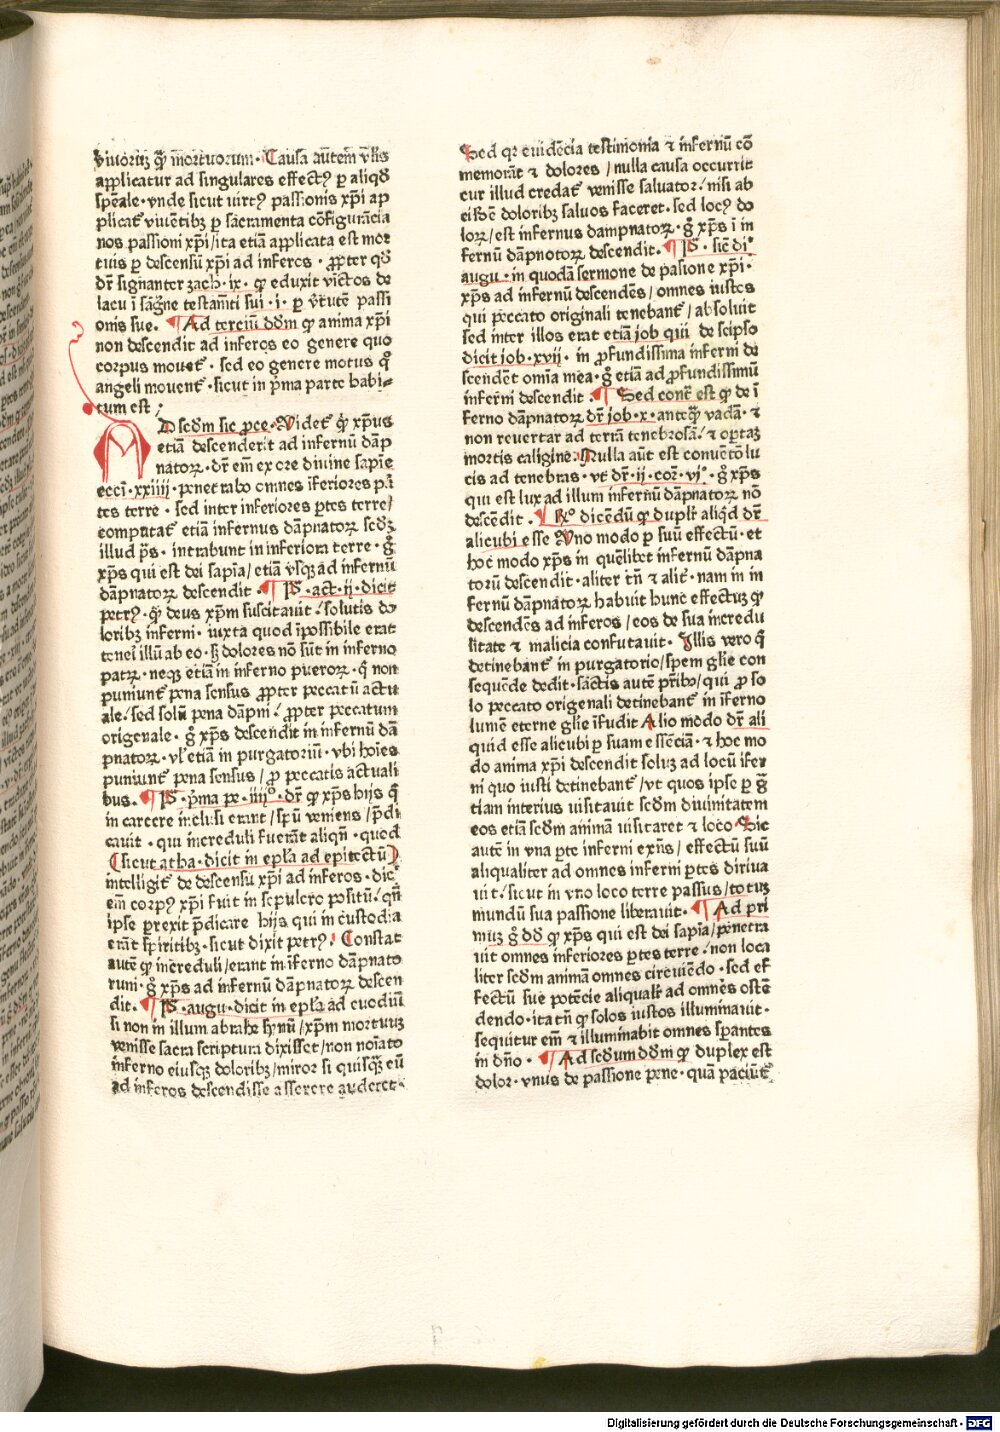 viuorūꝫ qͣꝫ mortuorum· Causa aūtem vl̄is
applicatur ad singulares effectꝰ ꝑ aliqđ
sp̄eale· vnde sicut uirtꝰ passionis xp̄i ap
plicat̄ viuētibꝫ ꝑ sacramenta cōfigurācia
nos passioni xp̄i/ita etiā applicata est mor
tuis ꝑ descensū xp̄i ad inferos· ꝓpter qđ
dr̄ signanter zach·ix· ꝙ eduxit vīctos de
lacu ī sāgne testamēti sui·i· ꝑ v̄tutē passi
onis sue. ¶Ad terciū dōm ꝙ anima xp̄i
non descendit ad inferos eo genere quo
corpus mouet̄· sed eo genere motus qͦ
angeli mouent̄· sicut in p̄ma parte habi⸗
tum est;
AD scđm sic ꝓce· Videt̄ qͥ xp̄us
etiā descenderit ad infernū dāp
natorꝝ· dr̄ em̄ ex ore diuine sapīe
eccī·xxiiij· penetrabo omnes īferiores pā
tes terre· sed inter inferiores ꝑtes terre/
computat̄ etiā infernus dāpnatorꝝ scđꝫ
illud ps̄· intrabunt in inferiora terre· gͦ
xp̄s qui est dei sapīa/etiā vsqꝫ ad infernū
dāpnatorꝝ descendit· ¶Pͭ·act·ij·dicit
petrꝰ· qͥ deus xp̄m suscitauit/solutis do
loribꝫ inferni· iuxta quod īpossibile erat
teneī illū ab eo· sꝫ dolores nō sūt in inferno
patrꝝ· neqꝫ etiā in inferno pueroꝝ· qͥ non
puniunt̄ pena sensus ꝓpter peccatū actu
ale/sed solū pena dāpni/ ꝓpter peccatum
origenale· gͦ xp̄s descendit in infernū dā
pnatorꝝ· vl̄ etiā in purgatoriū· vbi hoīes
puniunt̄ pena sensus/ꝓ peccatis actuali
bus. ¶Pͭ·p̄ma pe·iiijͦ· dr̄ ꝙ xp̄s hijs qͥ
in carcere inclusi erant/spū veniens/p̄di
cauit· qui increduli fuerāt aliqn̄· quod
(sicut atha·dicit in epl̄a ad epitectū)
intelligit̄ de descensu xp̄i ad inferos· dic̄
em̄ corpꝰ xp̄i fuit in sepulcro positū/qn̄
ipse perexit p̄dicare hijs qui in custodia
erāt spiritibꝫ· sicut dixit petrꝰ· Constat
autē ꝙ increduli/erant in īferno dāpnato
rum· gͦ xp̄s ad infernū dāpnatorꝝ descen
dit. ¶Pͭ·augu·dicit in epl̄a ad euodiū
si non in illum abrahe synū/xp̄m mortuūꝫ
venisse sacra scriptura dixisset/non noīato
inferno eiusqꝫ doloribꝫ/miror si quisqꝫ eū
ad inferos descendisse asserere auderet·
Sed qꝛ euidēcia testimonia ⁊ infernū cō
memorāt ⁊ dolores/nulla causa occurrit
cur illud credat̄ venisse saluator/nisi ab
eisdē doloribꝫ saluos faceret· sed locꝰ do
lorꝝ/est infernus dampnatorꝝ· gͦ xp̄s ī in
fernū dāpnotorꝝ descendit. ¶Pͭ· sic̄ di
augu·in quodā sermone de pasione xp̄i·
xp̄s ad infernū descendēs/omnes iustos
qui peccato originali tenebant̄/absoluit
sed inter illos erat etiā iob qui de seipso
dicit iob·xvij· in ꝓfundissima inferni de
scendēt omīa mea· gͦ etiā ad ꝓfundissimū
inferni descendit. ¶Sed contͣ est ꝙ de ī
ferno dāpnatorꝝ dr̄ iob·x· anteqͣ vadā· ⁊
non reuertar ad terrā tenebrosā/⁊ optaꝫ
mortis caligine· Nulla aūt est conuētō lu
cis ad tenebras· vt dr̄·ij·cor̄·vjͦ· gͦ xp̄s
qui est lux ad illum infernū dāpnatorꝝ nō
descēdit. ¶Rͦ dicendū ꝙ duplr̄ aliqͥd dr̄
alicubi esse Vno modo ꝑ suū effectū· et
hoc modo xp̄s in quēlibet infernū dāpna
torū descendit· aliter tn̄ ⁊ alit̄· nam in in
fernū dāpnatorꝝ habuit hunc effectuꝫ ꝙ
descendēs ad inferos/eos de sua incredu
litate ⁊ malicia confutauit· Illis vero qͥ
detinebant̄ in purgatorio/spem glīe con
sequēde dedit· sāctis autē pr̄ibꝰ/qui ꝓ so
lo peccato origenali detinebant̄ in īferno
lumē eterne glīe īfudit Alio modo dr̄ ali
quid esse alicubi ꝑ suam essēciā· ⁊ hoc mo
do anima xp̄i descendit soluꝫ ad locū īfer
ni quo iusti detinebant̄/vt quos ipse ꝑ gͣ
tiam interius visitauit scđm diuinitatem
eos etiā scđm animā uisitaret ⁊ loco· Sic
autē in vna ꝑte inferni exn̄s/effectū suū
aliqualiter ad omnes inferni ꝑtes diriua
uit/sicut in vno loco terre passus/totuꝫ
mundū sua passione liberauit. ¶Ad pri
muꝫ gͦ dđ ꝙ xp̄s qui est dei sapīa/penetra
uit omnes inferiores ꝑtes terre/non loca
liter scđm animā omnes circuīendo· sed ef
fectū sue potēcie aliqualr̄ ad omnes ostē
dendo· ita tn̄ ꝙ solos iustos illuminauit·
sequitur em̄ ⁊ illuminabit omnes sꝑantes
in dn̄o· ¶Ad scđum dōm ꝙ duplex est
dolor· vnus de passione pene· quā paciūt̄
Digitalisierung gefördert durch die Deutsche Forschungsgemeinschaft - DFG